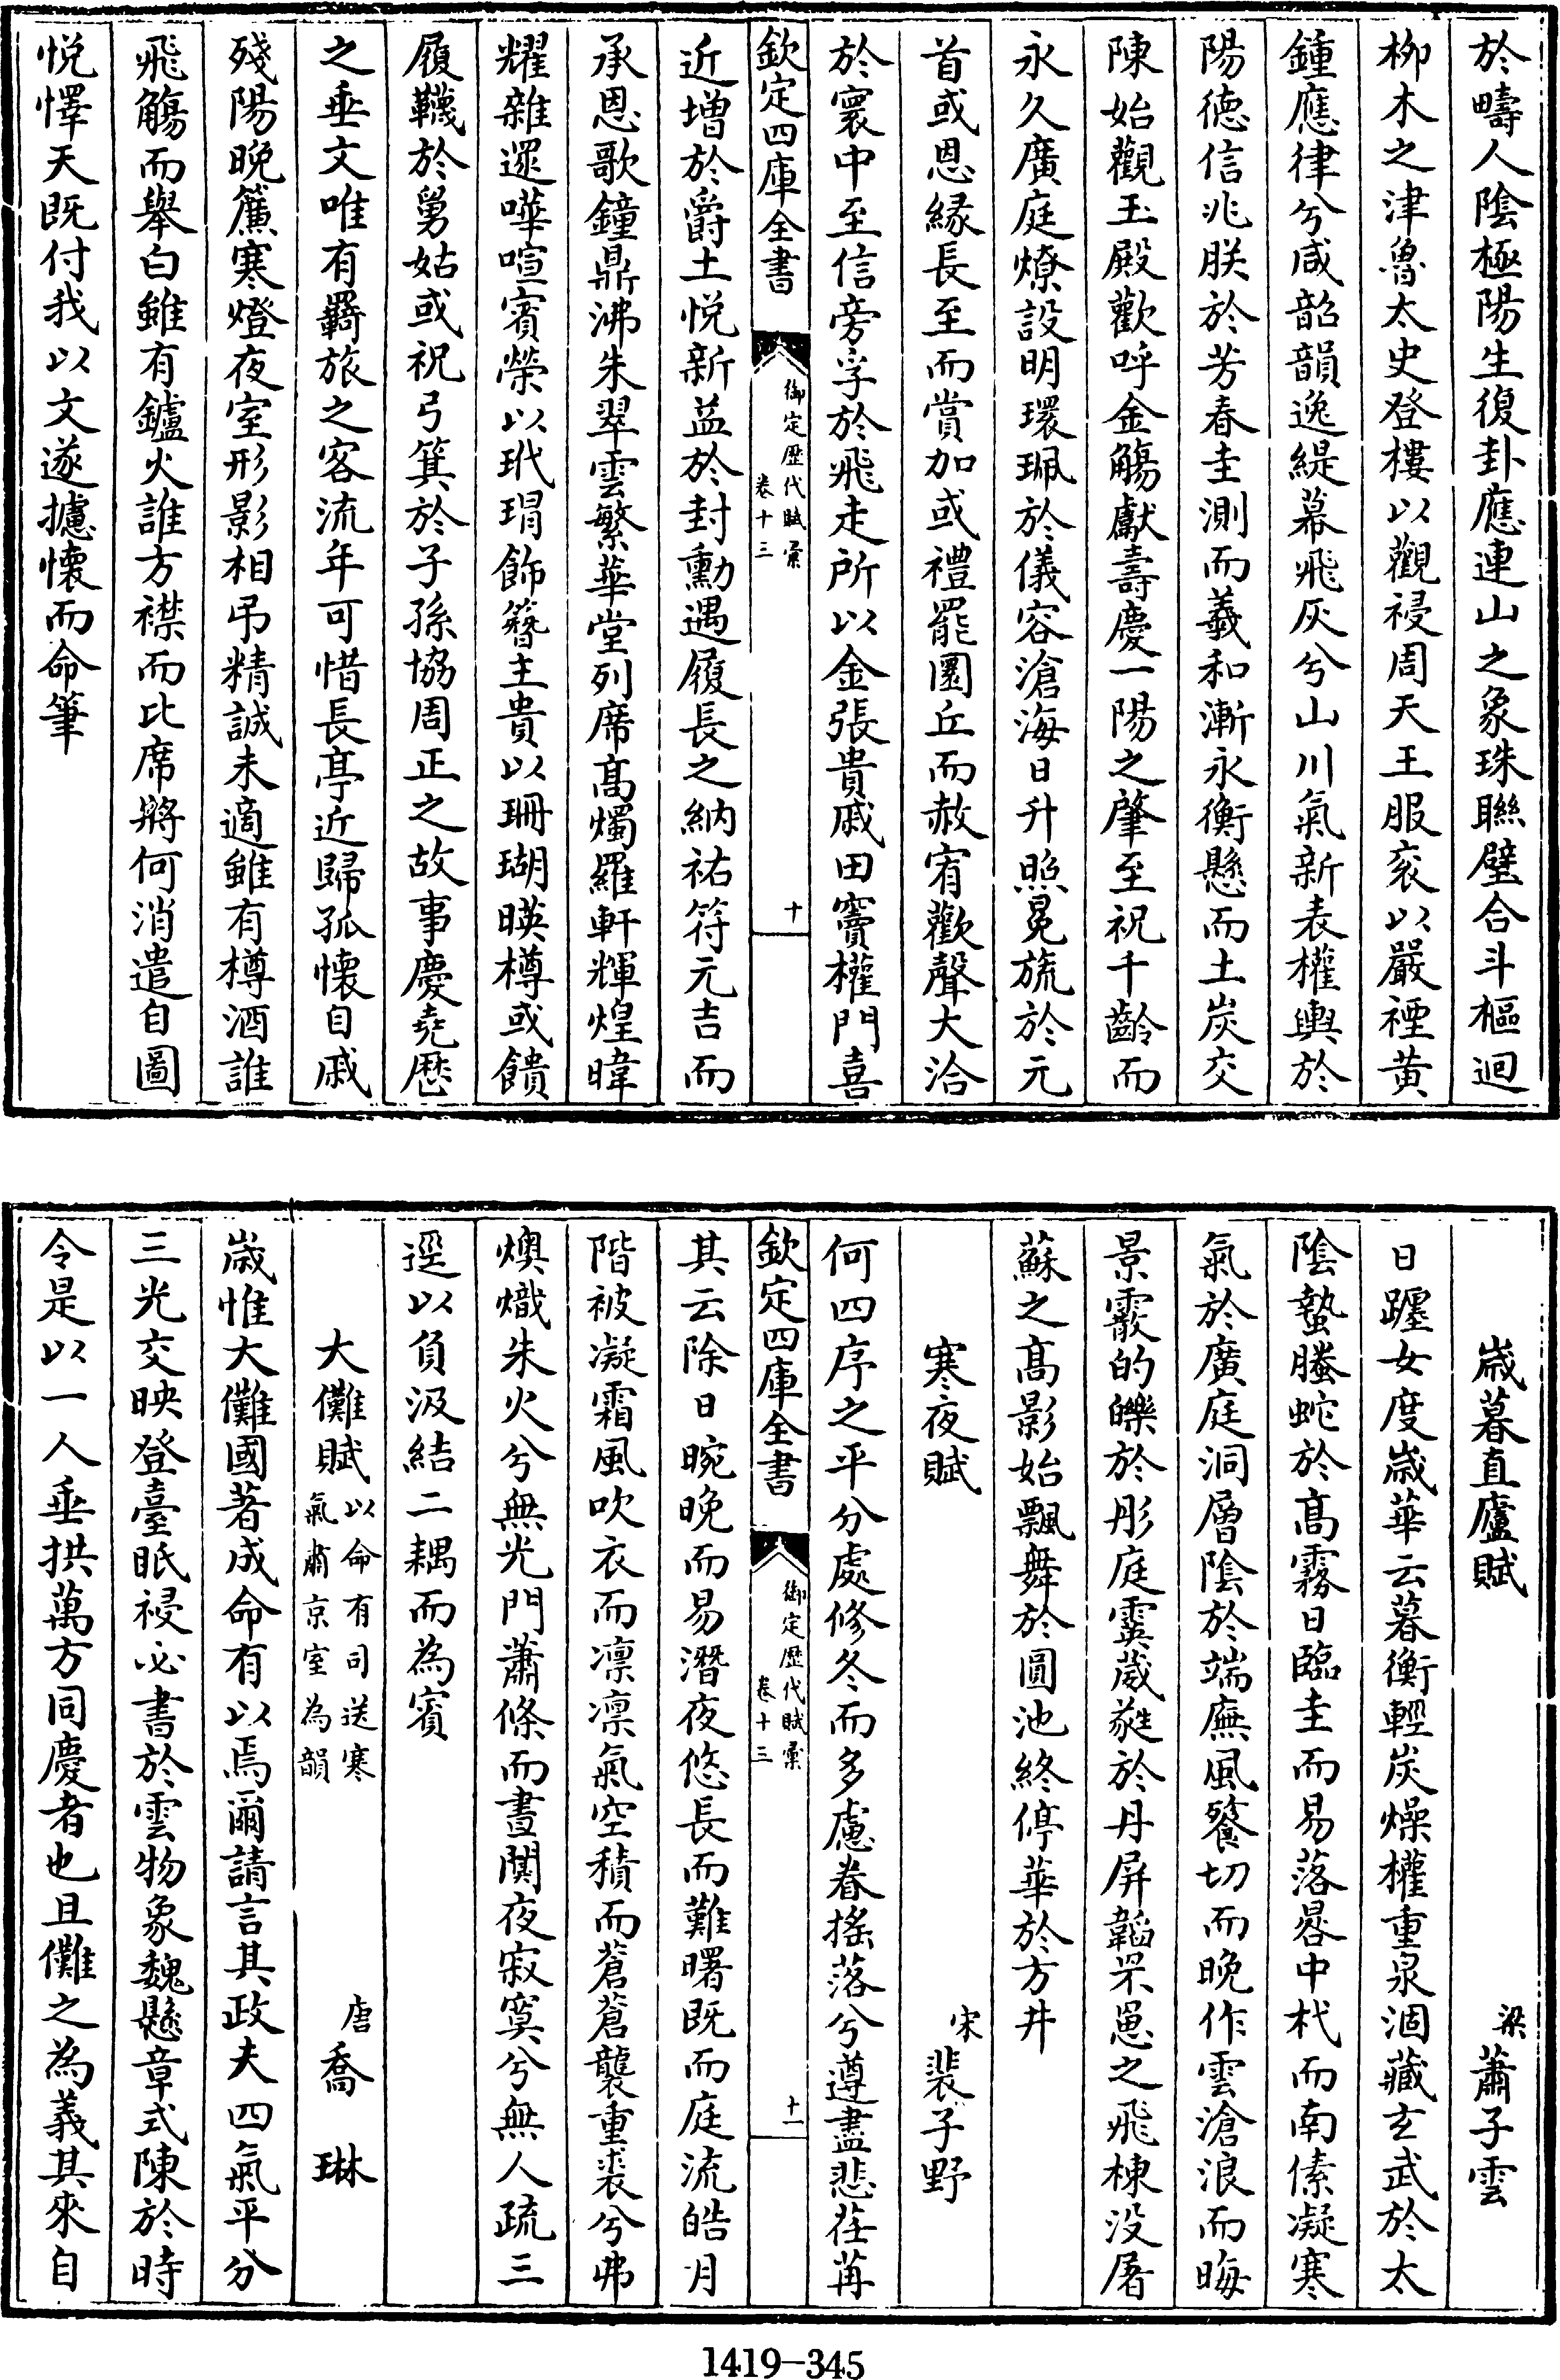 於疇人陰極陽生復卦應連山之象珠聯璧合斗樞迴
柳木之津魯太史登樓以觀祲周天王服衮以嚴禋黄
鍾應律兮咸韶韻逸緹幕飛灰兮山川氣新表權輿於
陽德信兆朕於芳春圭測而羲和漸永衡懸而土炭交
陳始觀玉殿歡呼金觴獻壽慶一陽之肇至祝千齡而
永久廣庭燎設明環珮於儀容滄海日升照冕旒於元
首或恩緣長至而賞加或禮罷圜丘而赦宥歡聲大洽
於寰中至信旁孚於飛走所以金張貴戚田竇權門喜
欽定四庫全書
御定歷代賦彙
卷十三
十
近增於爵土悦新益於封勳遇履長之納祐符元吉而
承恩歌鐘鼎沸朱翠雲繁華堂列席髙燭羅軒輝煌暐
耀雜遝嘩喧賓榮以玳瑁飾簪主貴以珊瑚暎樽或饋
履韈於舅姑或祝弓箕於子孫協周正之故事慶堯厯
之垂文唯有羇旅之客流年可惜長亭近歸孤懷自戚
殘陽晩簾寒燈夜室形影相弔精誠未適雖有樽酒誰
飛觴而舉白雖有鑪火誰方襟而比席將何消遣自圖
悦懌天既付我以文遂攄懷而命筆
歳暮直廬賦
梁蕭子雲
日躔女度歳華云暮衡輕炭燥權重泉涸藏玄武於太
陰蟄螣蛇於髙霧日臨圭而易落晷中杙而南傃凝寒
氣於廣庭洞層陰於端廡風餮切而晩作雲滄浪而晦
景霰的皪於彤庭霙葳蕤於丹屏韜罘罳之飛棟没屠
蘇之髙影始飄舞於圓池終停華於方井
寒夜賦
宋裴子野
何四序之平分處修冬而多慮眷摇落兮遵盡悲荏苒
欽定四庫全書
御定歷代賦彙
卷十三
十一
其云除日晼晩而易潛夜悠長而難曙既而庭流皓月
階被凝霜風吹衣而凛凛氣空積而蒼蒼襲重裘兮弗
燠熾朱火兮無光門蕭條而晝闃夜寂寞兮無人疏三
逕以負汲結二耦而為賓
大儺賦以命有司送寒氣肅京室為韻
唐喬琳
歳惟大儺國著成命有以焉爾請言其政夫四氣平分
三光交映登臺眡祲必書於雲物象魏懸章式陳於時
令是以一人垂拱萬方同慶者也且儺之為義其來自
1419-345